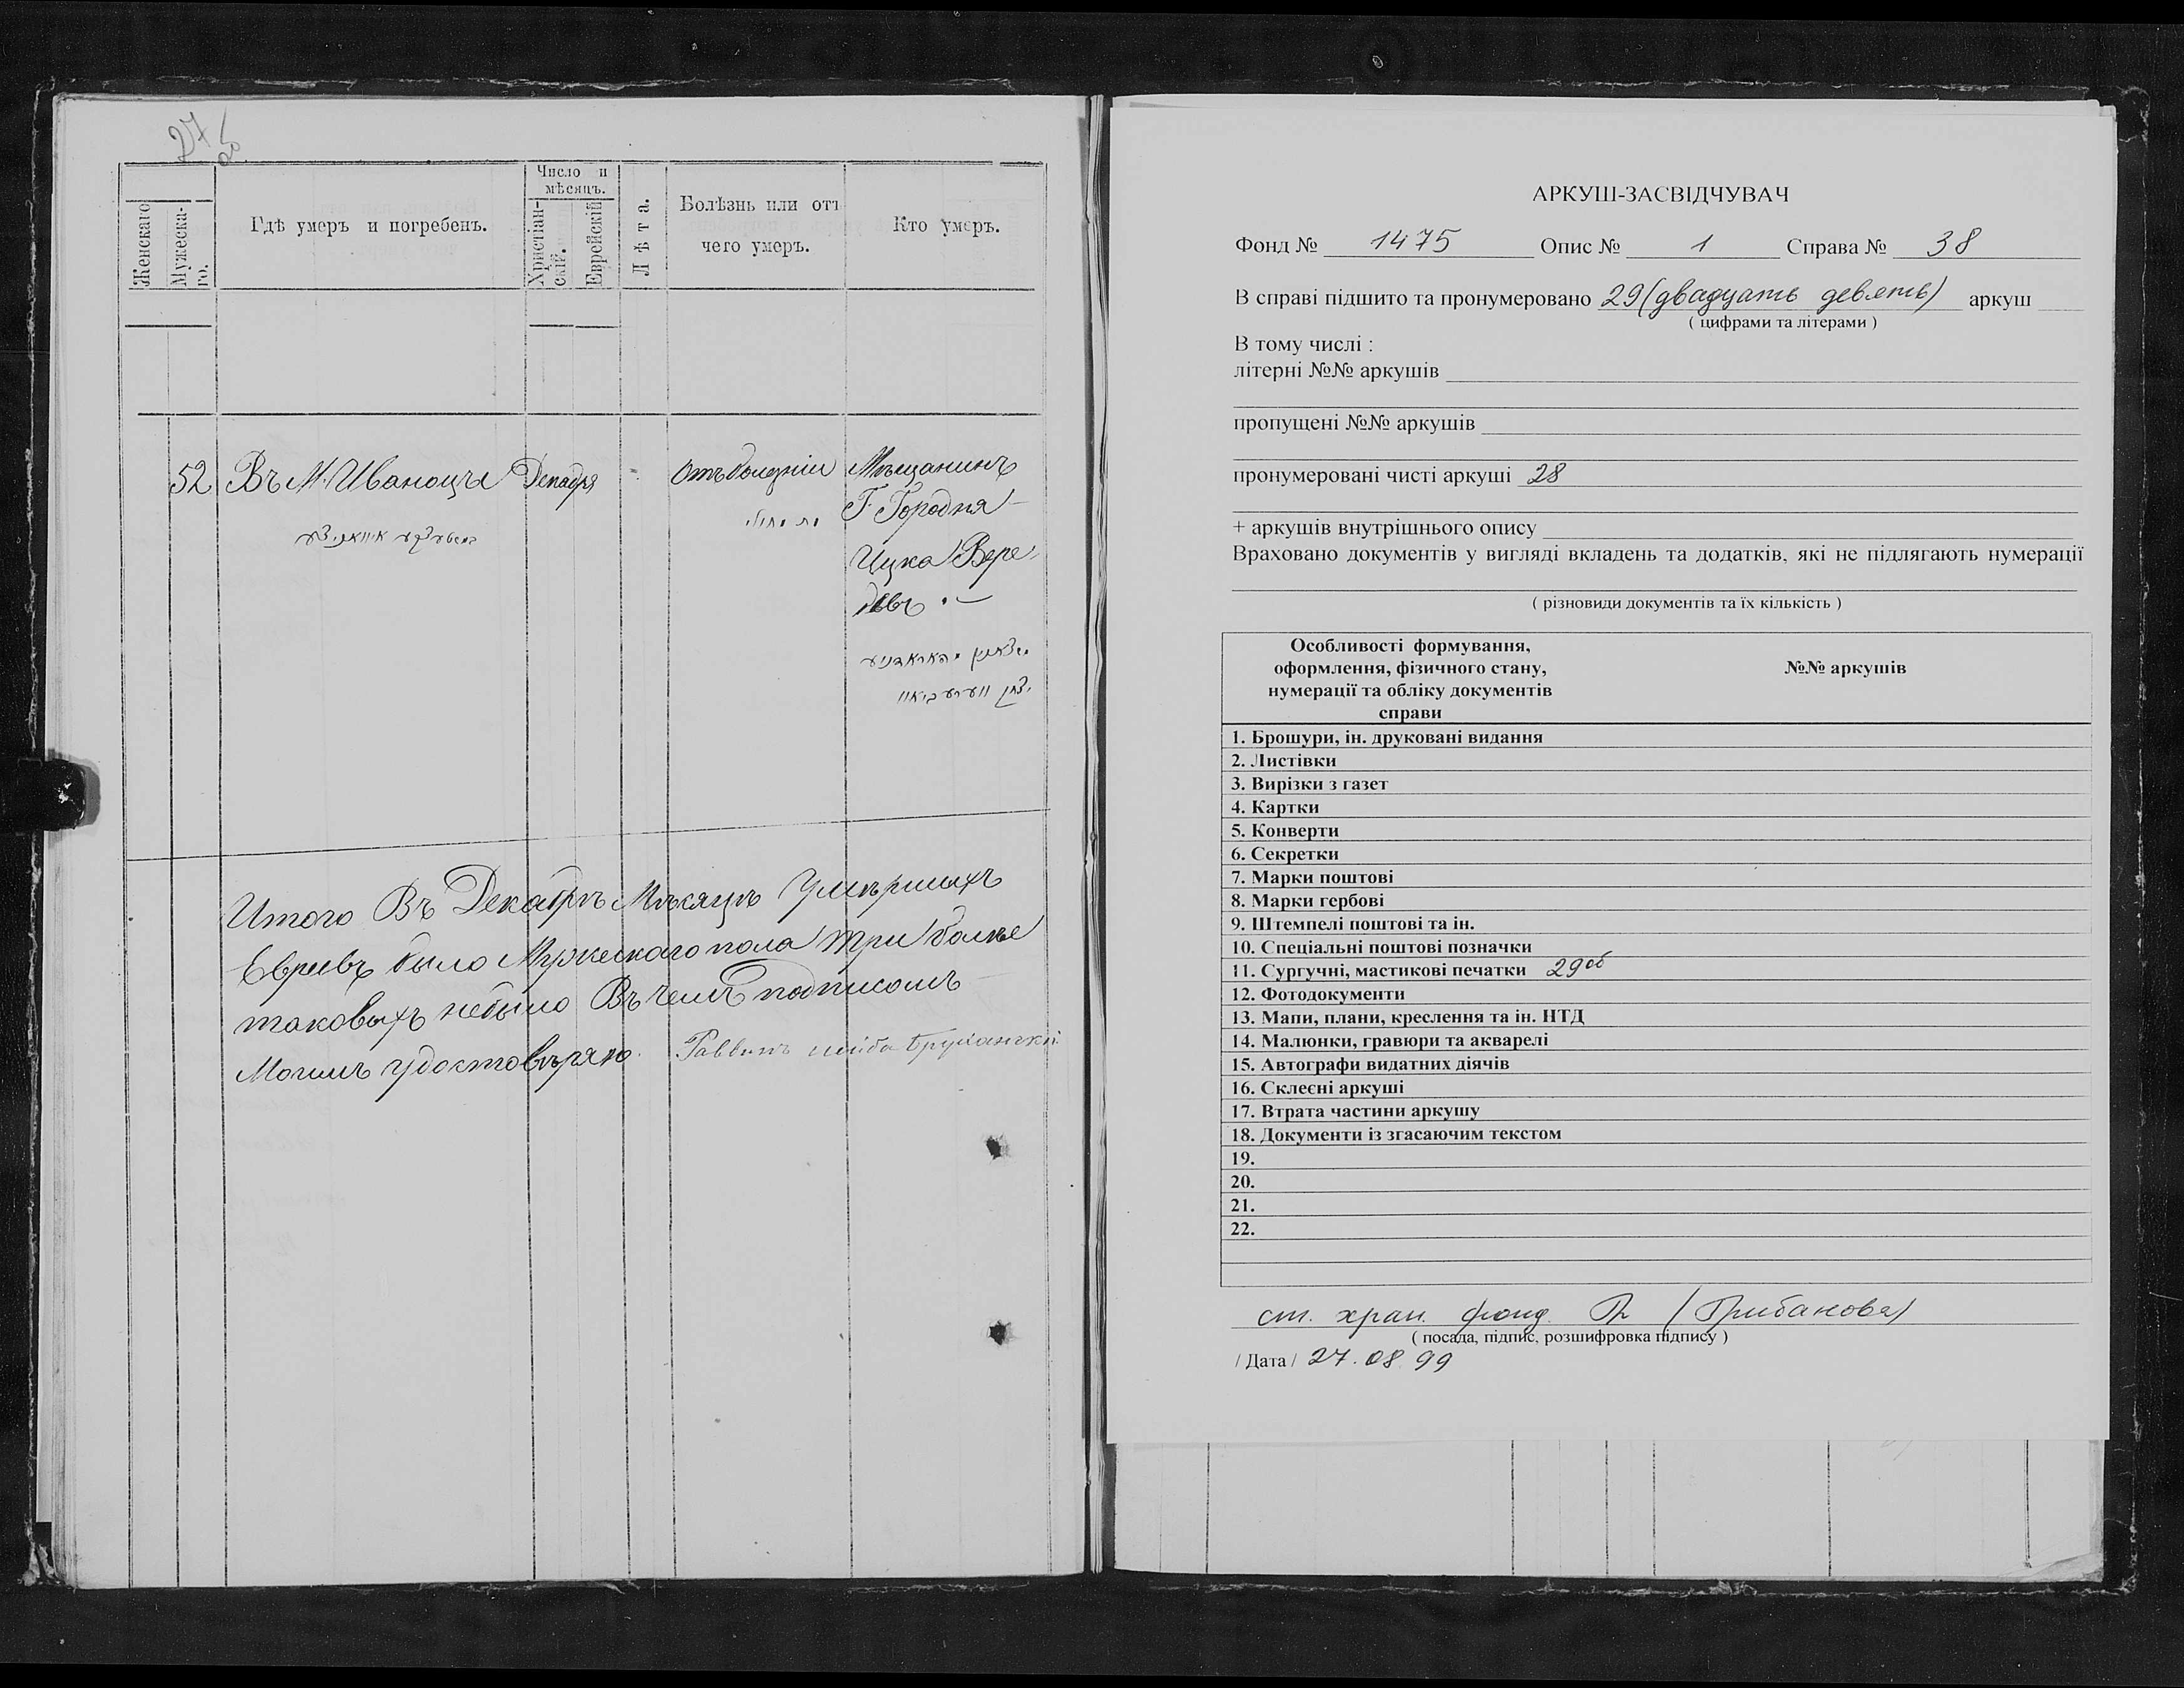 27
об
Женскаго
Мужеска-
го.
Гдѣ умеръ и погребенъ.
Число и
мѣсяцъ.
Христіан-
скій.
Еврейскій
Лѣта.
Болѣзнь или отъ
чего умеръ.
Кто умеръ.
52 Въ М. Иваницы Декабря отъ болезніи Мѣщанинъ
Г. Городня
Ицка Вере-
איוואניצע
יצחק
Итого Въ Декабрѣ Мѣсяцѣ Умѣршихъ
Евреевъ было Мужескаго пола три болѣе
таковыхъ небыло Въ чемъ подписомъ
Моимъ удостовѣряю. Раввинъ
АРКУШ-ЗАСВІДЧУВАЧ
Фонд № 1475 Опис № 1 Справа № 38
В справі підшито та пронумеровано 29 (двадцать девять) аркуш
( цифрами та літерами )
В тому числі :
літерні №№ аркушів
пропущені №№ аркушів
пронумеровані чисті аркуші 28
+ аркушів внутрішнього опису
Враховано документів у вигляді вкладень та додатків, які не підлягають нумерації
( різновиди документів та їх кількість )
Особливості формування,
оформлення, фізичного стану,
нумерації та обліку документів
справи
№№ аркушів
1. Брошури, ін. друковані видання
2. Листівки
3. Вирізки з газет
4. Картки
5. Конверти
6. Секретки
7. Марки поштові
8. Марки гербові
9. Штемпелі поштові та ін.
10. Спеціальні поштові позначки
11. Сургучні, мастикові печатки 29об
12. Фотодокументи
13. Мапи, плани, креслення та ін. НТД
14. Малюнки, гравюри та акварелі
15. Автографи видатних діячів
16. Склеєні аркуші
17. Втрата частини аркушу
18. Документи із згасаючим текстом
19.
20.
21.
22.
ст. хран. фонд. (Грибанова)
( посада, підпис, розшифровка підпису )
/ Дата / 27.08.99